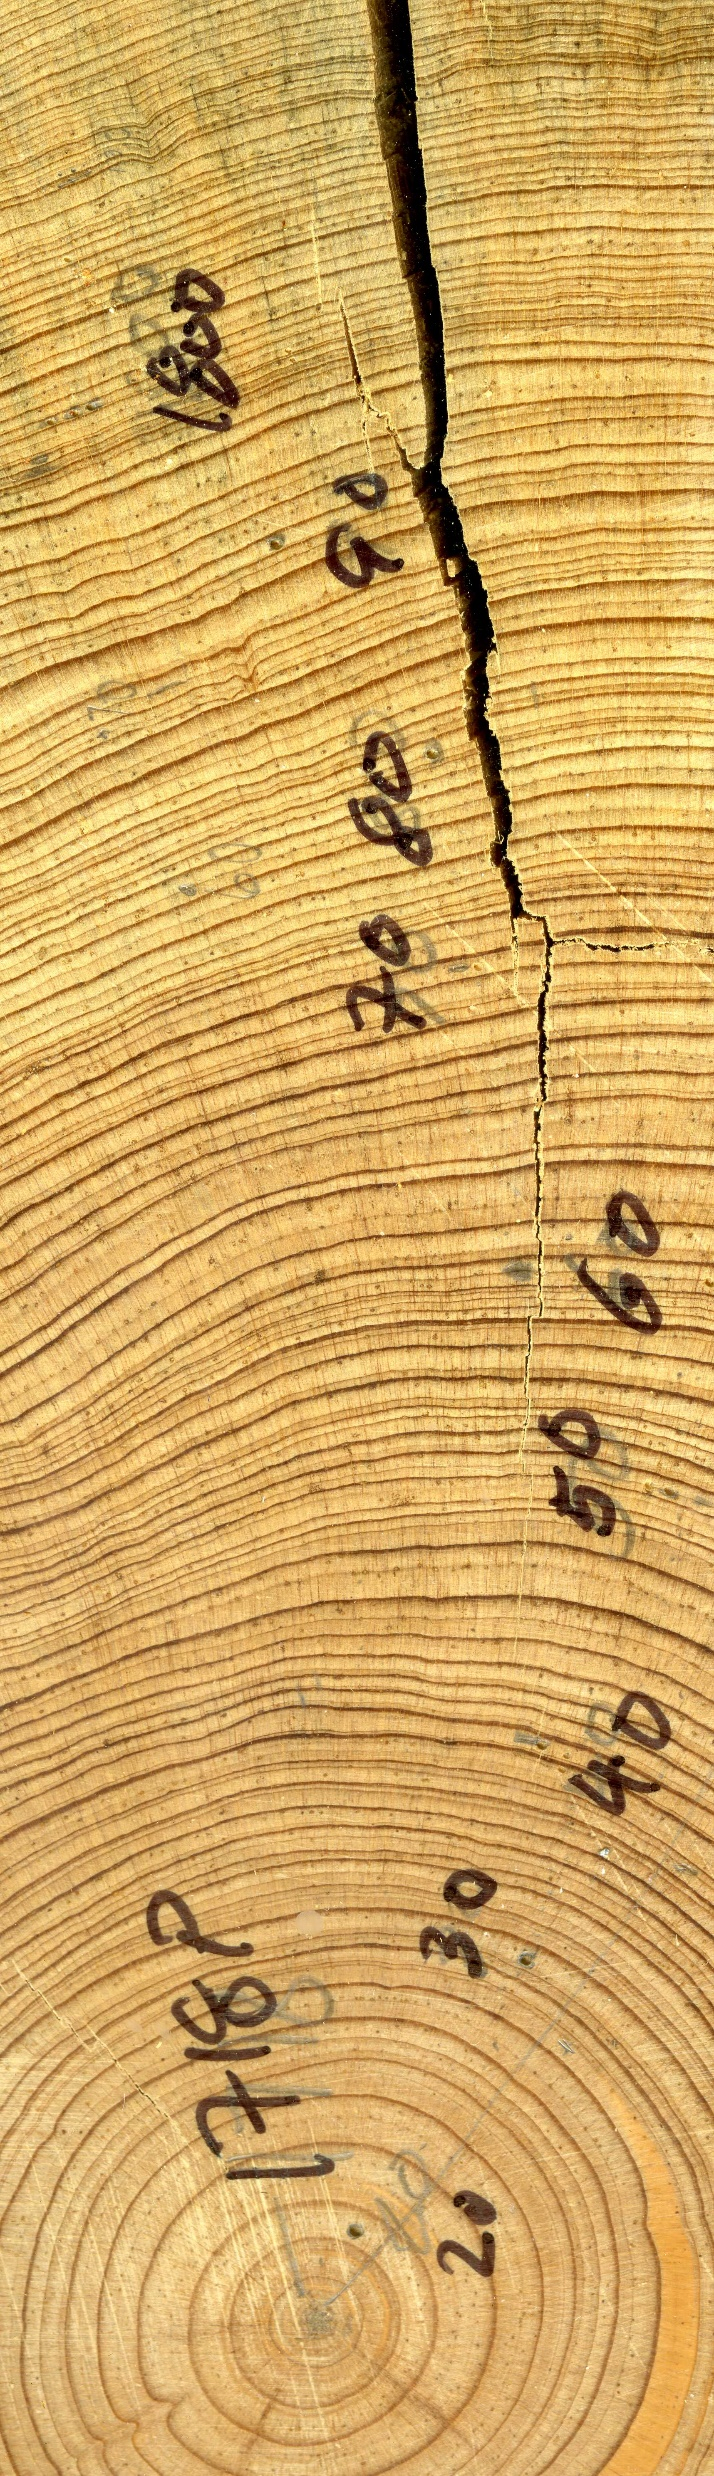 1800
90
80
70
60
50
40
30
1718?
20